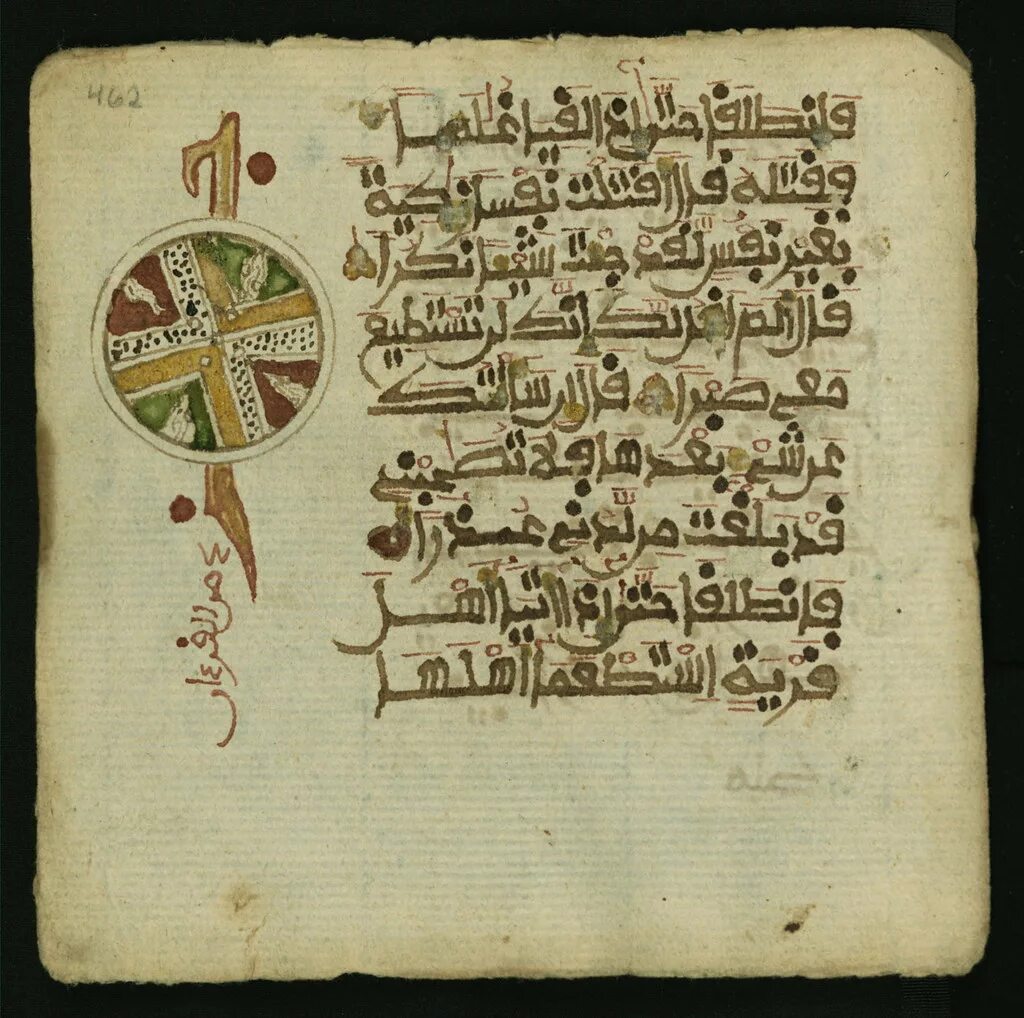 462
فانطلقا حتى إذا لقيا غلما
فقتله قال أقتلت نفسا زكية
بغير نفس لقد جئت شيئا نكرا
قال ألم أقل لك إنك لن تستطيع
معي صبرا قال إن سألتك
عن شيء بعدها فلا تصحبني
قد بلغت من لدني عذرا
فانطلقا حتى إذا أتيا أهل
قرية استطعما أهلها
من القرءان